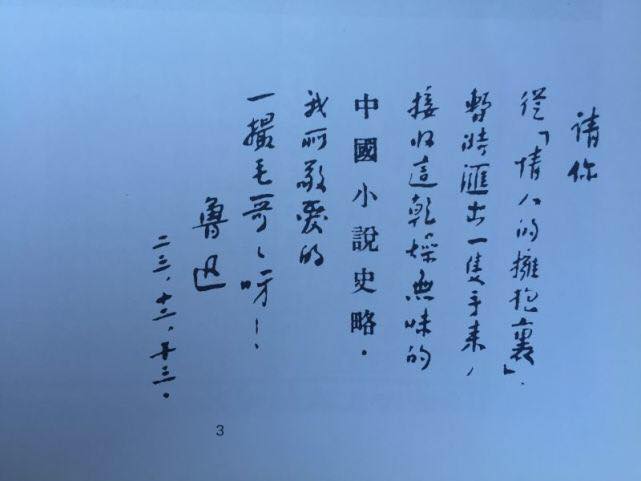 请你
從「情人的擁抱裏」，
暫時匯出一隻手来，
接收這乾燥無味的
中國小說史略。
我所敬愛的
一撮毛哥哥呀！
魯迅
二三，十二，十三。
3